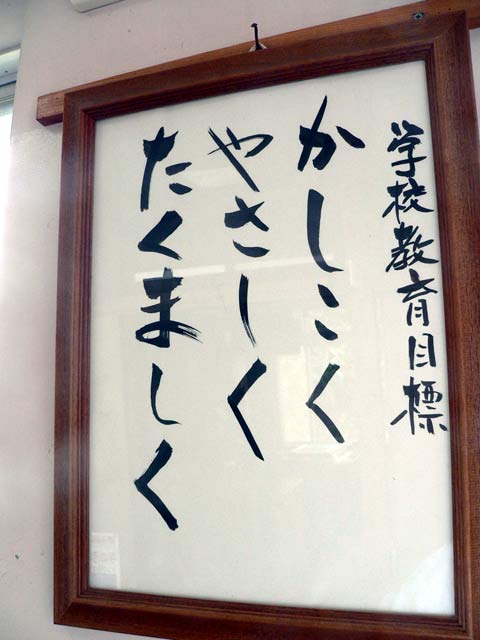 学校教育目標
かしこく
やさしく
たくましく